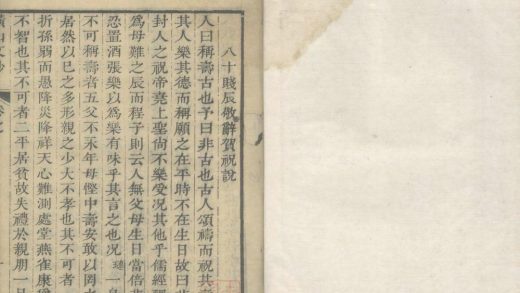 八十賤辰敬辭賀祝說
人曰稱壽古也予曰非古也古人頌禱而祝其
其人樂其德而稱願之在平時不在生日故曰非
封人之祝帝堯上聖尙不樂受况其他乎儒經
爲母難之辰而程子則云人無父母生日當倍
忍置酒張樂以爲樂有味乎其言之也况一
不可稱壽者五父不禾年母慳中壽安敢以罔
居然以已之多形親之少大不孝也其不可者
折孫弱而愚降災降祥天心難測處堂燕雀康
不智也其不可者二平居貧故失禮於親朋一
山文鈔 卷之